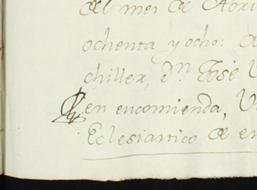 del mes de Abri
ochenta y ocho:
chiller, dn José
en encomienda,
Eclesiastico de en